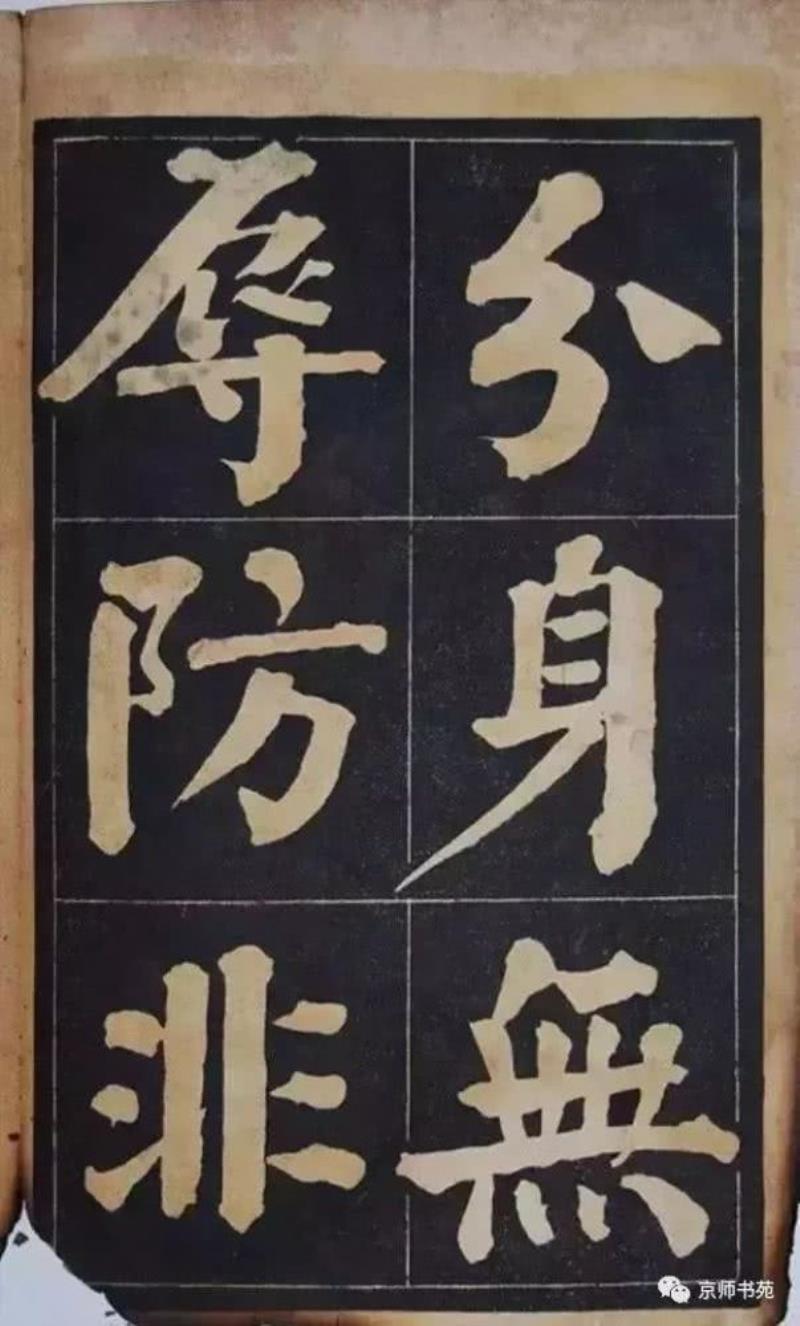 分身無
辱防非
京师书苑